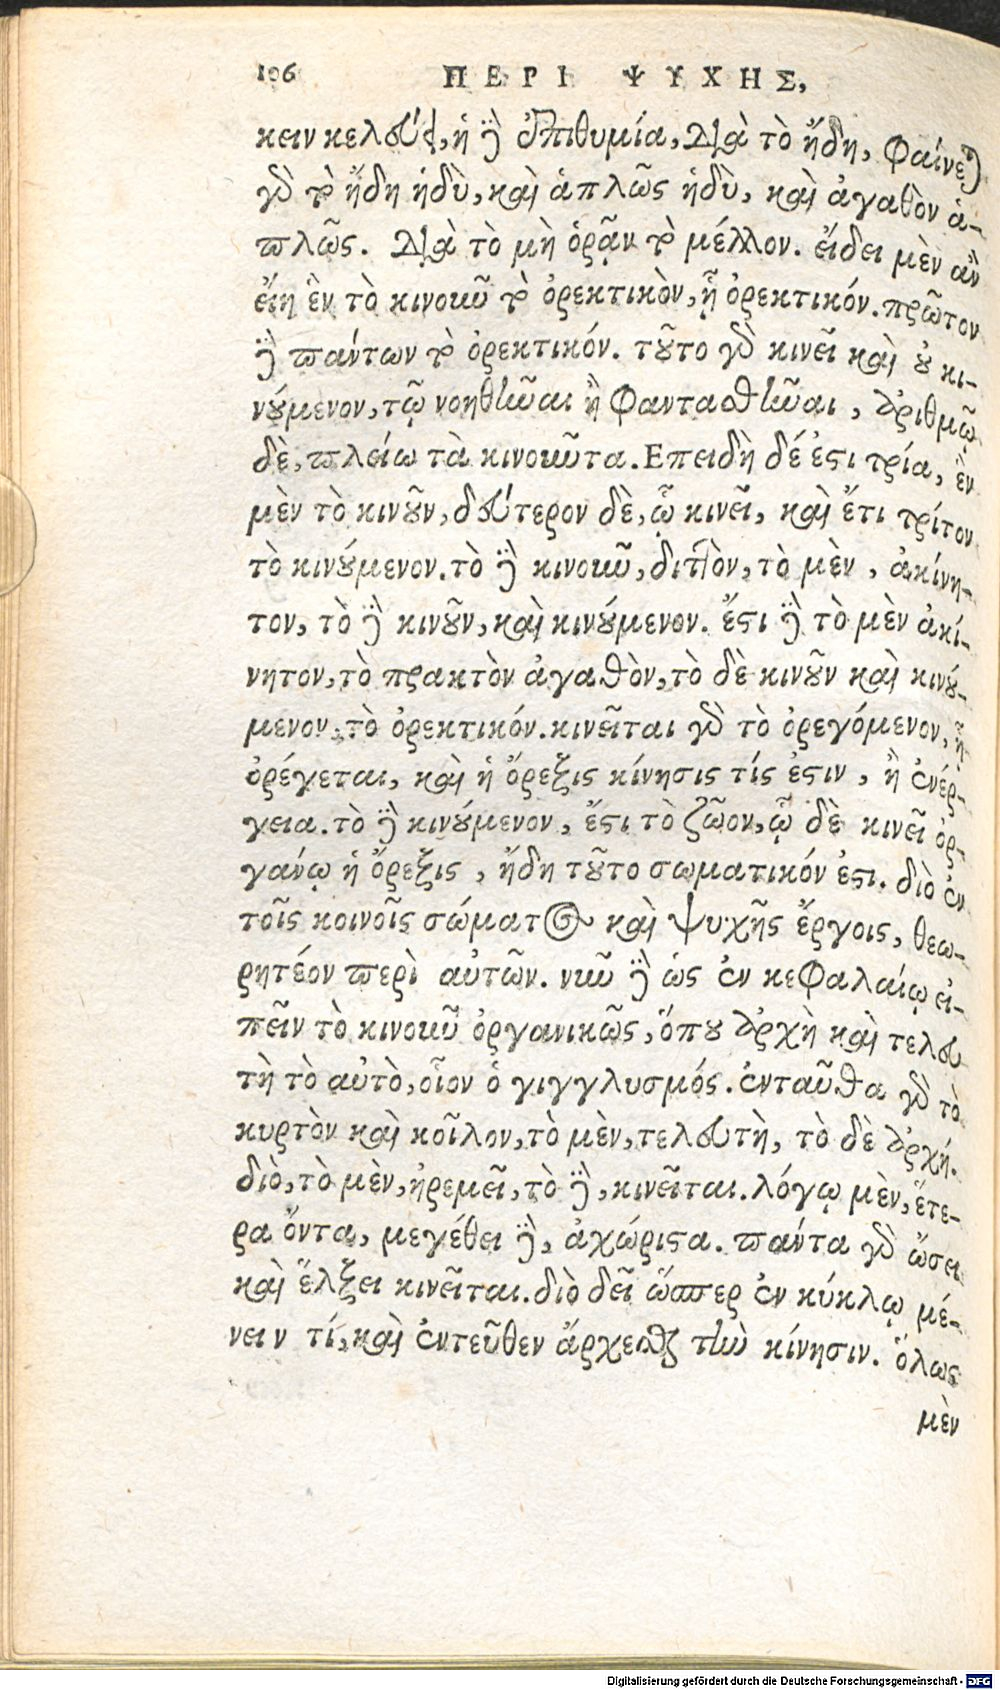 106 ΠΕΡΙ ΨΥΧΗΣ,
κειν κελεύει, ἡ δὲ ἐπιθυμία, διὰ τὸ ἤδη, φαίνεται
γὰρ τὸ ἤδη ἡδὺ, καὶ ἁπλῶς ἡδὺ, καὶ ἀγαθὸν ἁ-
πλῶς. διὰ τὸ μὴ ὁρᾷν τὸ μέλλον. εἴδει μὲν ἂν
εἴη ἓν τὸ κινοῦν τὸ ὀρεκτικὸν, ᾗ ὀρεκτικόν. πρῶτον
δὲ πάντων τὸ ὀρεκτικόν. τοῦτο γὰρ κινεῖ καὶ οὐ κι-
νούμενον, τῷ νοηθῆναι ἢ φαντασθῆναι, ἀριθμῷ
δὲ, πλείω τὰ κινοῦντα. Επειδὴ δέ ἐστι τρία, ἓν
μὲν τὸ κινοῦν, δεύτερον δὲ, ᾧ κινεῖ, καὶ ἔτι τρίτον
τὸ κινούμενον. τὸ δὲ κινοῦν, διττὸν, τὸ μὲν, ἀκίνη-
τον, τὸ δὲ κινοῦν, καὶ κινούμενον. ἔστι δὲ τὸ μὲν ἀκί-
νητον, τὸ πρακτὸν ἀγαθὸν, τὸ δὲ κινοῦν καὶ κινού-
μενον, τὸ ὀρεκτικόν. κινεῖται γὰρ τὸ ὀρεγόμενον, ᾗ
ὀρέγεται, καὶ ἡ ὄρεξις κίνησις τίς ἐστιν, ἢ ἐνέρ-
γεια. τὸ δὲ κινούμενον, ἔστι τὸ ζῶον, ᾧ δὲ κινεῖ ὀρ-
γάνῳ ἡ ὄρεξις, ἤδη τοῦτο σωματικόν ἐστι. διὸ ἐν
τοῖς κοινοῖς σώματος καὶ ψυχῆς ἔργοις, θεω-
ρητέον περὶ αὐτῶν. νῦν δὲ ὡς ἐν κεφαλαίῳ εἰ-
πεῖν τὸ κινοῦν ὀργανικῶς, ὅπου ἀρχὴ καὶ τελευ
τὴ τὸ αὐτὸ, οἷον ὁ γιγγλυσμός. ἐνταῦθα γὰρ τὸ
κυρτὸν καὶ κοῖλον, τὸ μὲν, τελευτὴ, τὸ δὲ ἀρχή.
διὸ, τὸ μὲν, ἠρεμεῖ, τὸ δὲ, κινεῖται. λόγῳ μὲν, ἕτε-
ρα ὄντα, μεγέθει δὲ, ἀχώριστα. πάντα γὰρ ὤσει
καὶ ἕλξει κινεῖται. διὸ δεῖ ὥσπερ ἐν κύκλῳ μέ-
νειν τί, καὶ ἐντεῦθεν ἄρχεσθαι τὴν κίνησιν. ὅλως
μὲν
Digitalisierung gefördert durch die Deutsche Forschungsgemeinschaft - DFG